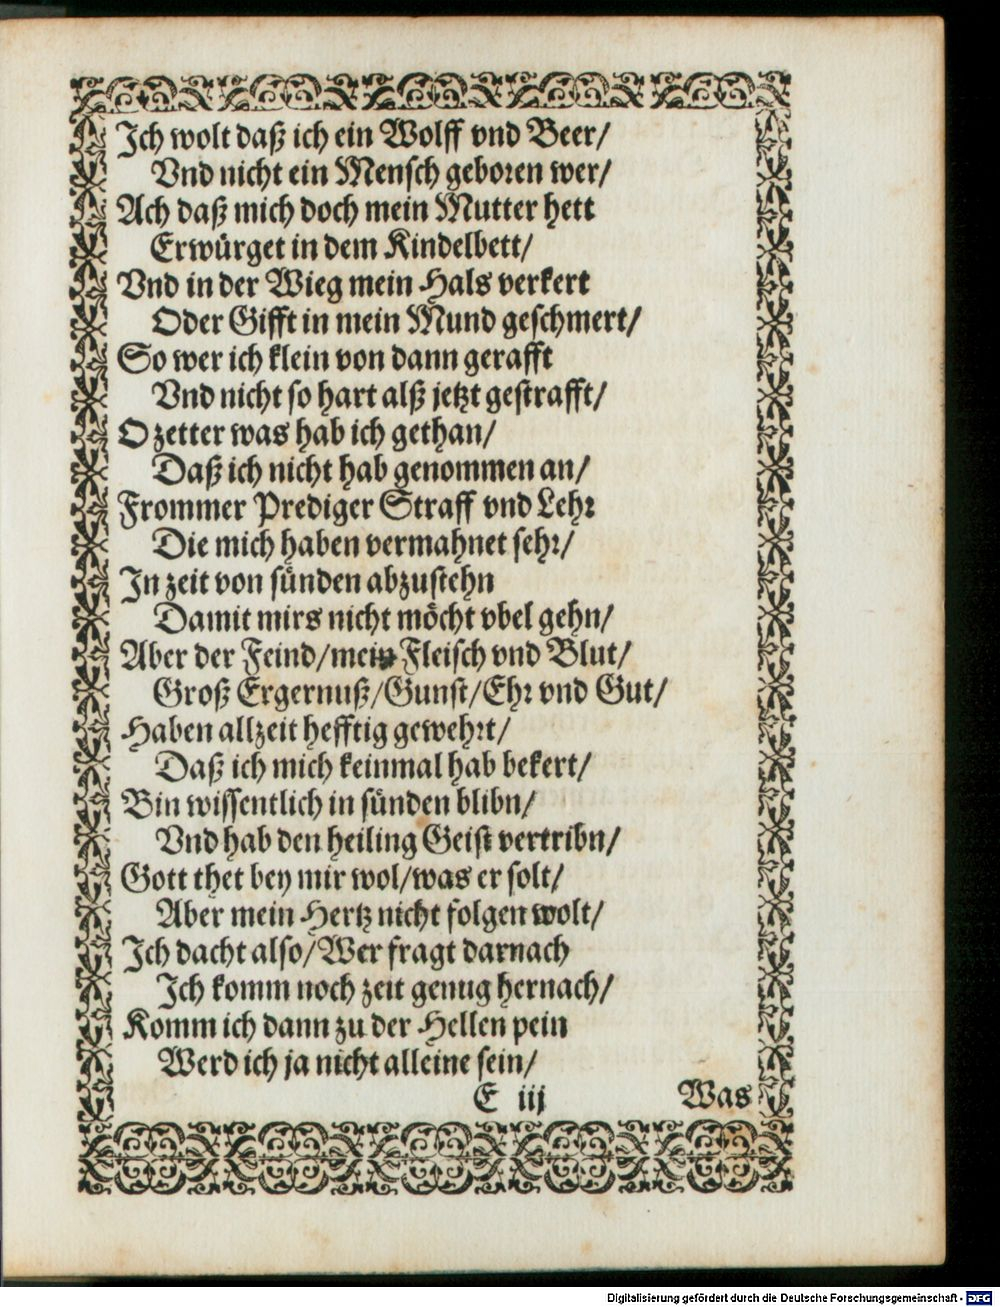 Ich wolt daß ich ein Wolff vnd Beer/
Vnd nicht ein Mensch geboren wer/
Ach daß mich doch mein Mutter hett
Erwürget in dem Kindelbett/
Vnd in der Wieg mein Hals verkert
Oder Gifft in mein Mund geschmert/
So wer ich klein von dann gerafft
Vnd nicht so hart alß jetzt gestrafft/
O zetter was hab ich gethan/
Daß ich nicht hab genommen an/
Frommer Prediger Straff vnd Lehr
Die mich haben vermahnet sehr/
In zeit von sünden abzustehn
Damit mirs nicht möcht vbel gehn/
Aber der Feind/mein Fleisch vnd Blut/
Groß Ergernuß/Gunst/Ehr vnd Gut/
Haben allzeit hefftig gewehrt/
Daß ich mich keinmal hab bekert/
Bin wissentlich in sünden blibn/
Vnd hab den heiling Geist vertribn/
Gott thet bey mir wol/was er solt/
Aber mein Hertz nicht folgen wolt/
Ich dacht also/Wer fragt darnach
Ich komm noch zeit genug hernach/
Komm ich dann zu der Hellen pein
Werd ich ja nicht alleine sein/
E iij Was
Digitalisierung gefördert durch die Deutsche Forschungsgemeinschaft - DFG